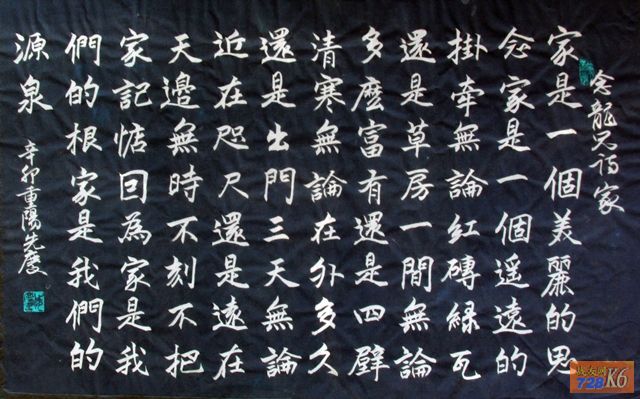 念龍兄詩家
家是一個美麗的思
念家是一個遥遠的
掛牽無論紅磚緑瓦
還是草房一間無論
多麽富有還是四壁
清寒無論在外多久
還是出門三天無論
近在咫尺還是遠在
天邊無時不刻不把
家記惦因為家是我
們的根家是我們的
源泉
辛卯重陽
战友网
728K6